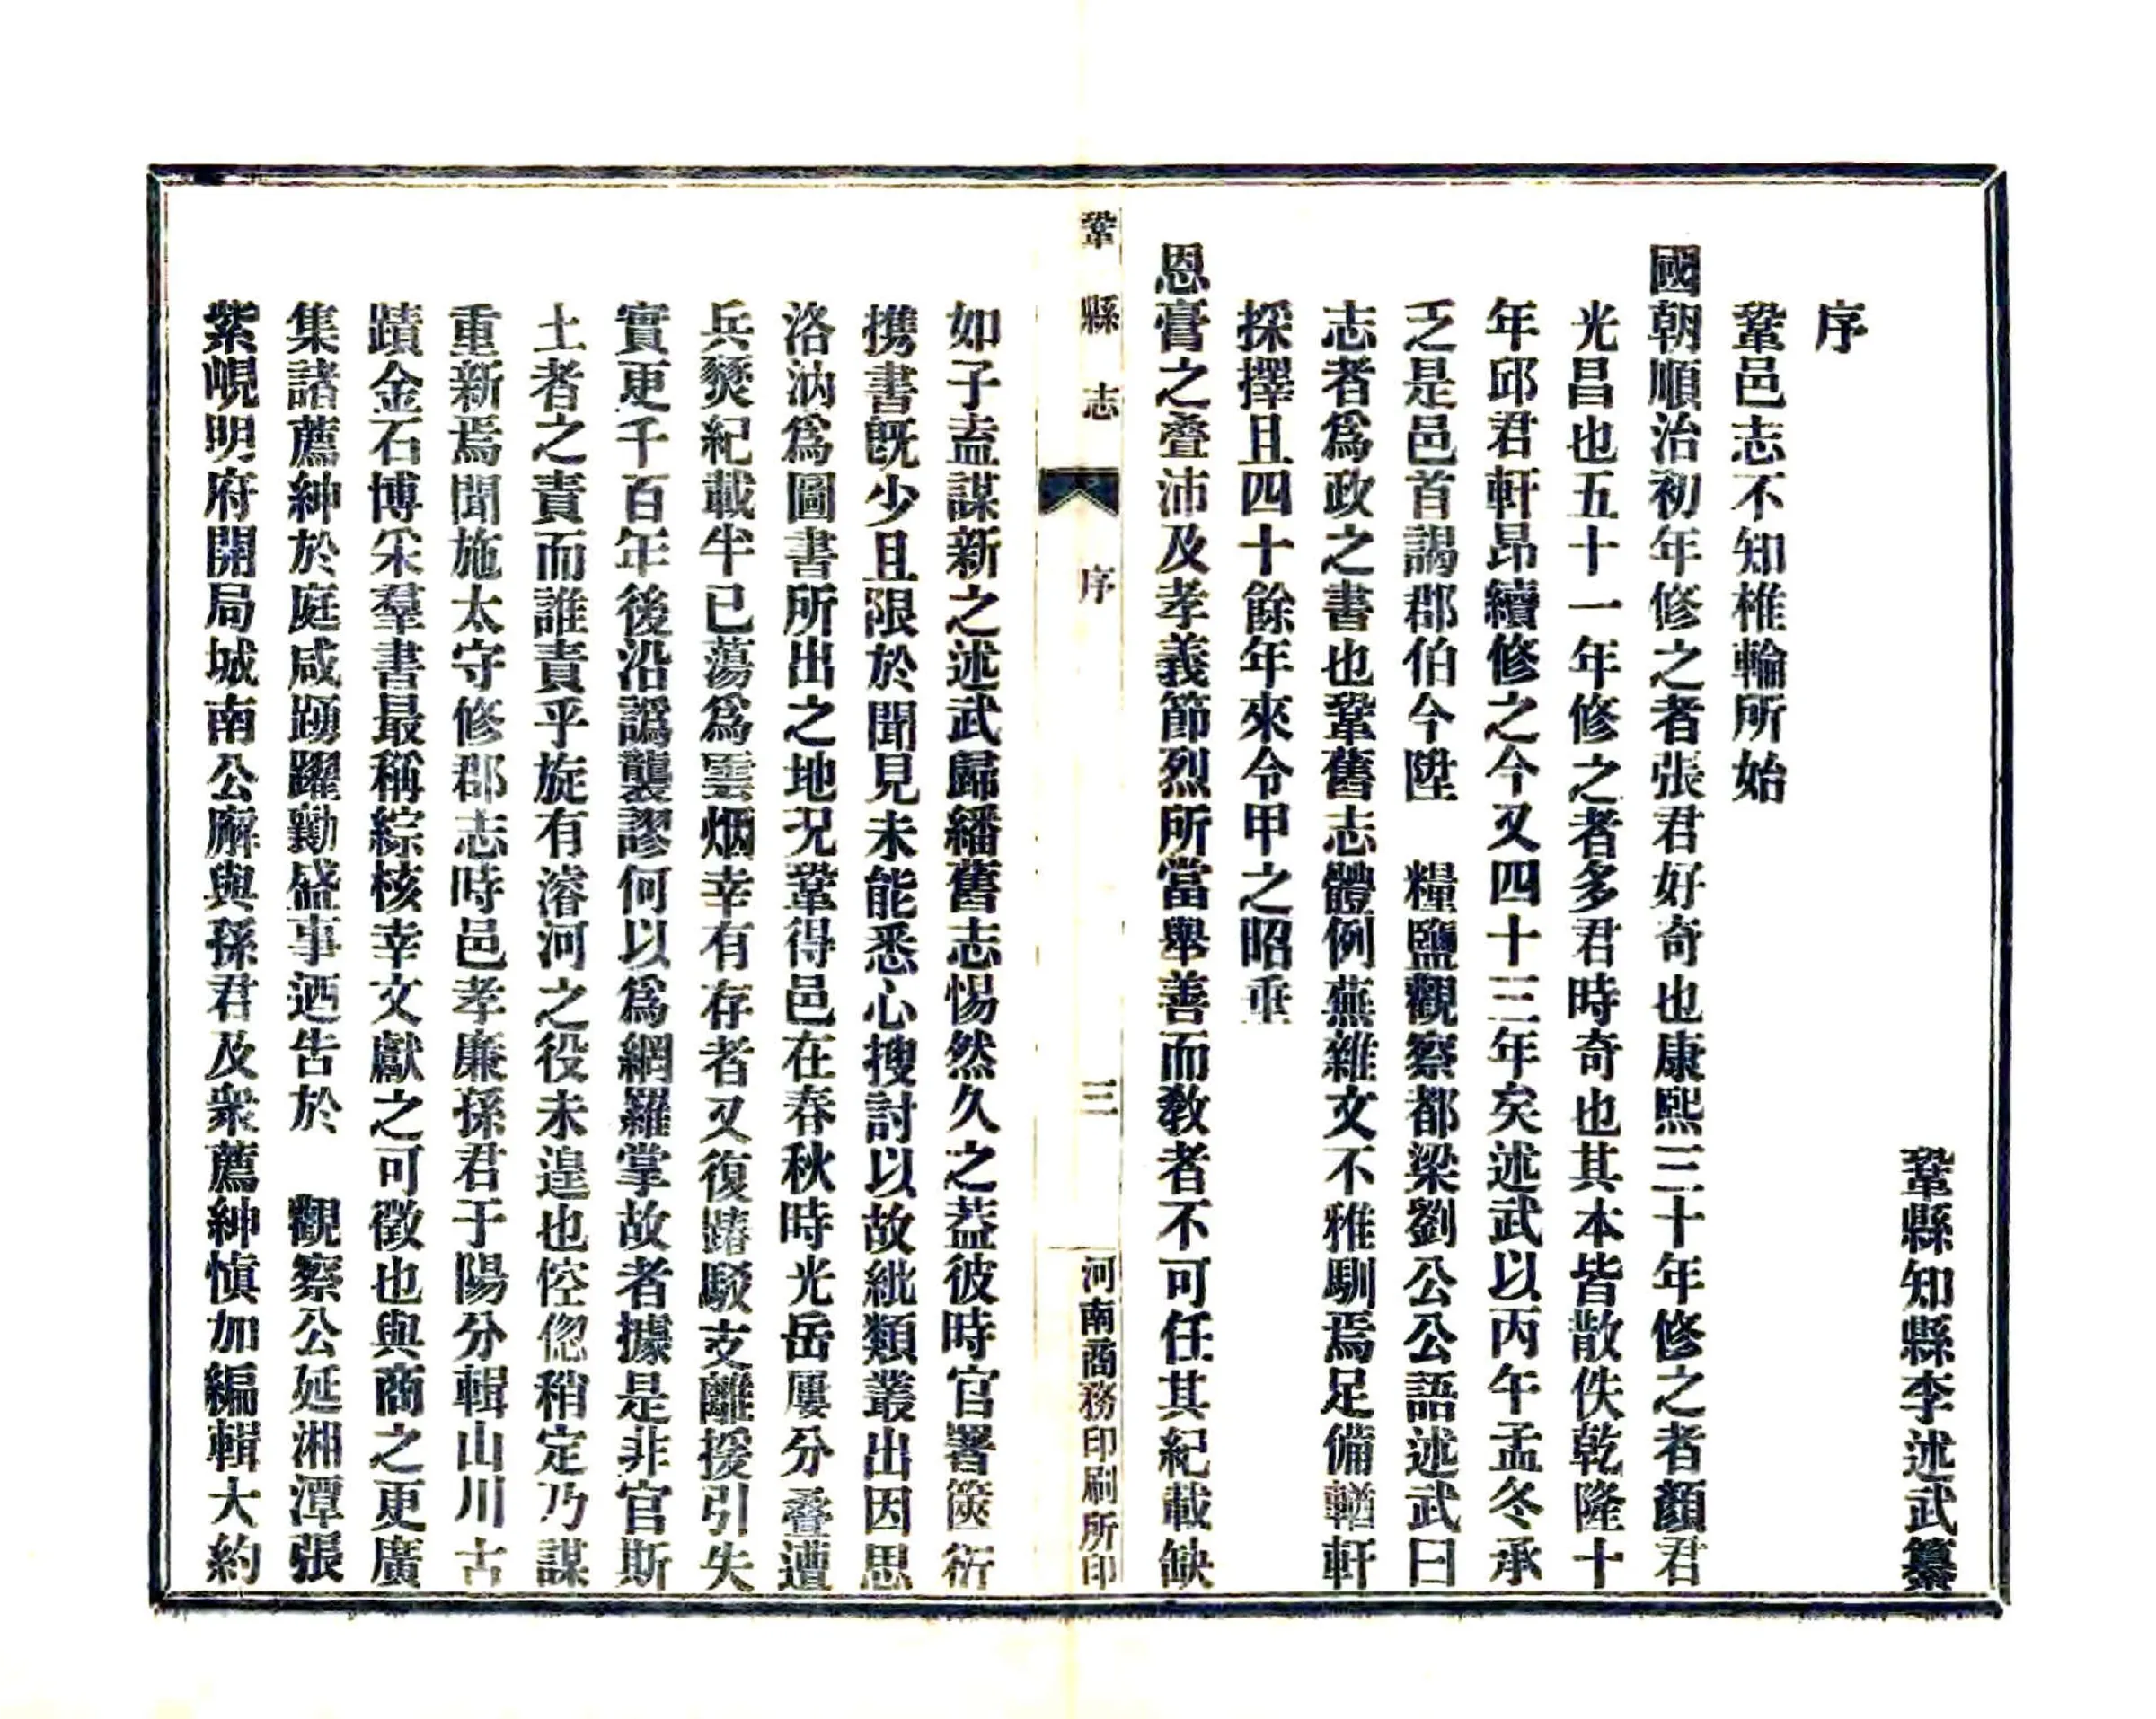 鞏縣知縣李述武纂
序
鞏邑志不知椎輪所始
國朝順治初年修之者張君好奇也康熙三十年修之者顏君
光昌也五十一年修之者多君時奇也其本皆散佚乾隆十
年邱君軒昂續修之今又四十三年矣述武以丙午孟冬承
乏是邑首謁郡伯今陞　糧鹽觀察都梁劉公公語述武曰
志者爲政之書也鞏舊志體例蕪雜文不雅馴焉足備輶軒
採擇且四十餘年來令甲之昭垂
恩膏之叠沛及孝義節烈所當舉善而教者不可任其紀載缺
鞏縣志　序　三　河南商務印刷所印
如子盍謀新之述武歸繙舊志惕然久之葢彼時官署篋衍
携書旣少且限於聞見未能悉心搜討以故紕類叢出因思
洛汭爲圖書所出之地况鞏得邑在春秋時光岳屢分叠遭
兵燹紀載半已蕩爲雲烟幸有存者又復踳駁支離援引失
實更千百年後沿譌襲謬何以爲網羅掌故者據是非官斯
土者之責而誰責乎旋有濬河之役未遑也倥偬稍定乃謀
重新焉聞施太守修郡志時邑孝廉孫君于陽分輯山川古
蹟金石博采羣書最稱綜核幸文獻之可徵也與商之更廣
集諸薦紳於庭咸踴躍勷盛事迺告於　觀察公延湘潭張
紫峴明府開局城南公廨與孫君及衆薦紳愼加編輯大約